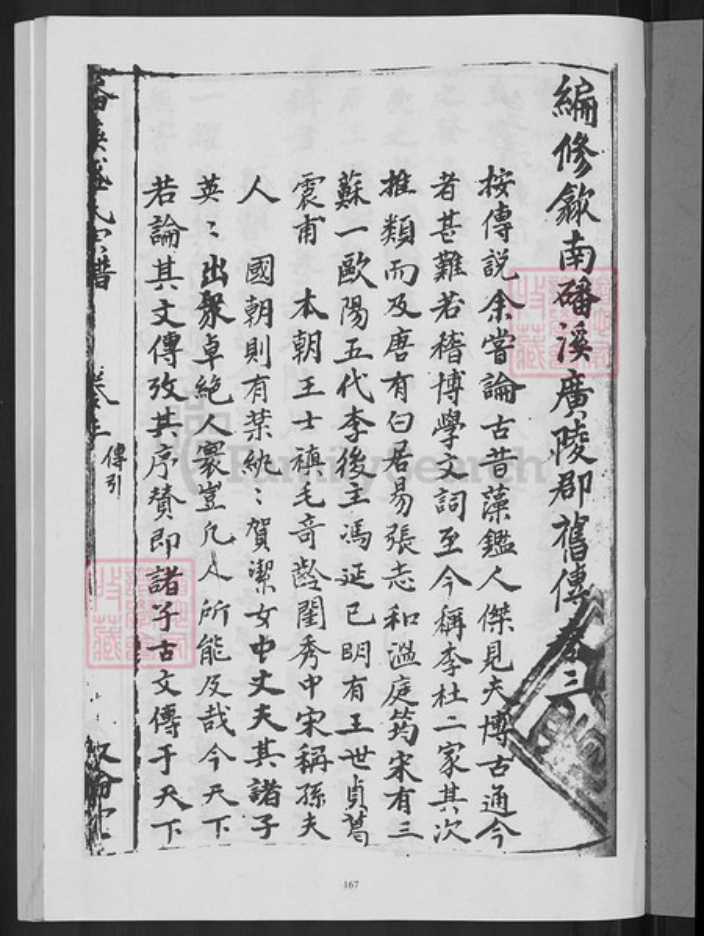 編修歙南磻溪廣陵郡舊傳卷三
按傳說余嘗論古昔藻鑑人傑見夫博古通今
者甚難若稽博學文詞至今稱李杜二家其次
推類而及唐有白居易張志和溫庭筠宋有三
蘇一歐陽五代李後主馮延巳明有王世貞葛
震甫 本朝王士禛毛奇齡閨秀中宋稱孫夫
人 國朝則有葉紈〻賀潔女中丈夫其諸子
英〻出眾卓絕人寰豈凡人所能及哉今天下
若論其文傳攷其序贊即諸子古文傳于天下
氏宗譜 卷三 傳引
FamilySearch
167